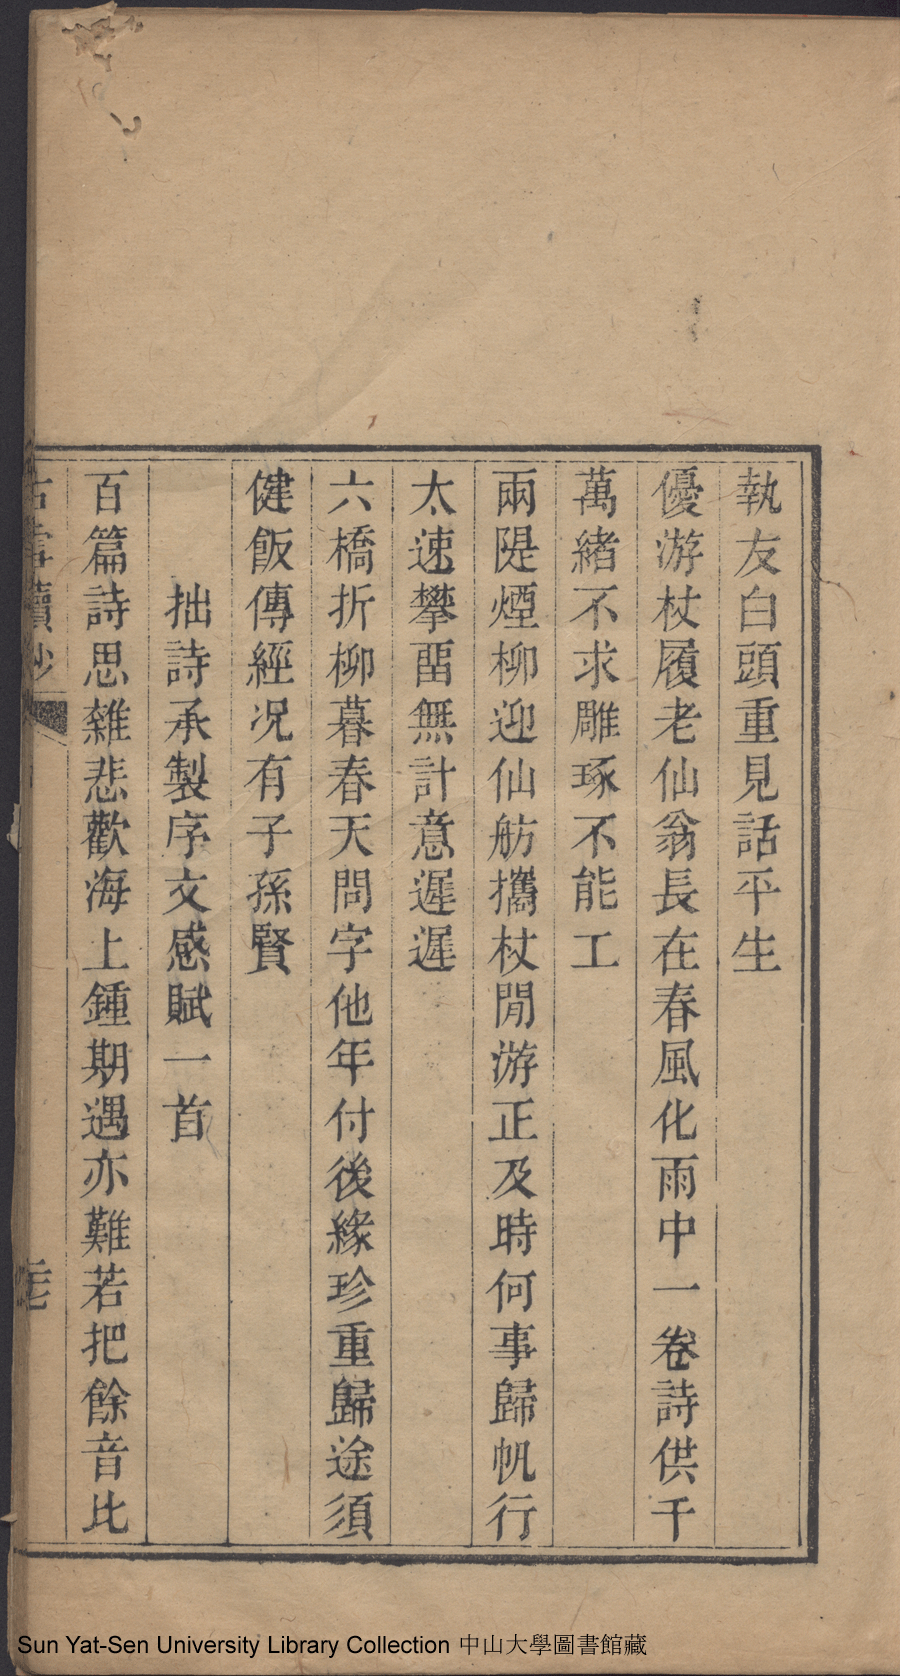 執友白頭重見話平生
優游杖履老仙翁長在春風化雨中一卷詩供千
萬緒不求雕琢不能工
兩隄煙柳迎仙舫攜杖閒游正及時何事歸帆行
太速攀畱無計意遲遲
六橋折柳暮春天問字他年付後緣珍重歸途須
健飯傳經况有子孫賢
拙詩承製序文感賦一首
百篇詩思雜悲歡海上鍾期遇亦難若把餘音比
Sun Yat-Sen University Library Collection 中山大學圖書館藏